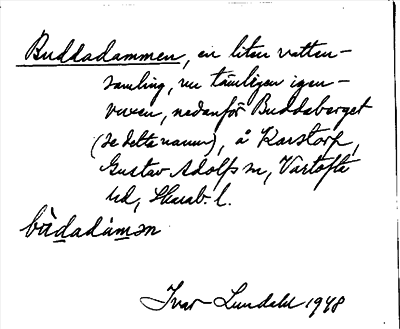 Buddadammen, en liten vatten-
samling, nu tämligen igen-
vuxen, nedanför Buddaberget
(se detta namn), å Karstorp,
Gustav Adolfs sn, Vartofta
hd, Skarab. l.
bùdadámən
Ivar Lundahl 1948